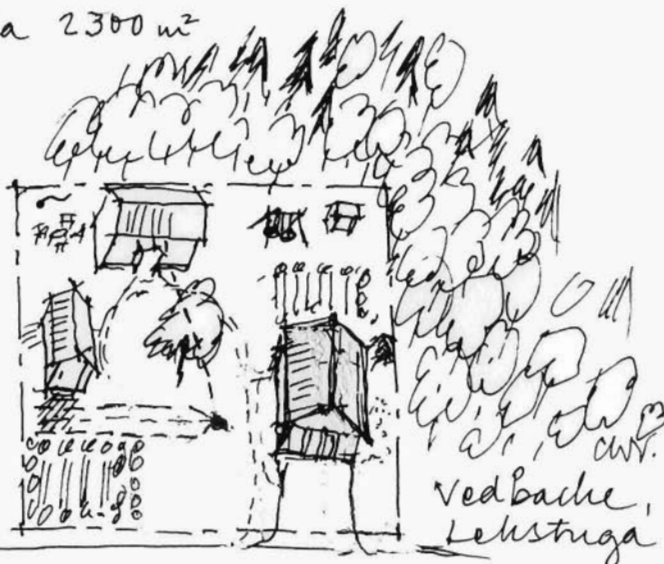 a 2300 m²
Vedbacke,
Lekstuga